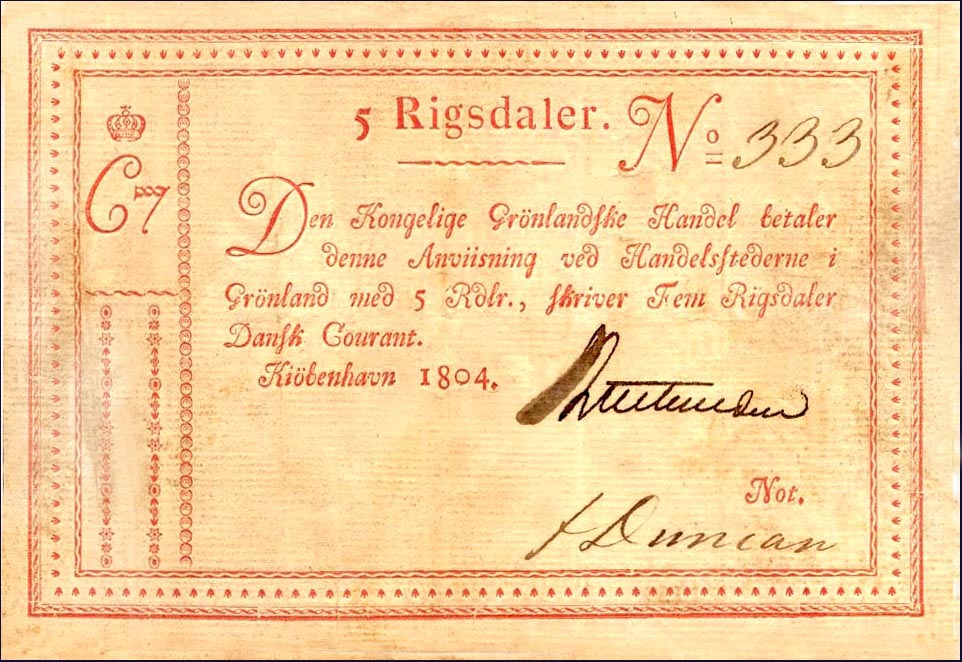 5 Rigsdaler. No 333
C7
Den Kongelige Grönlandske Handel betaler
denne Anviisning ved Handelsstederne i
Grönland med 5 Rdlr., skriver Fem Rigsdaler
Dansk Courant.
Kiöbenhavn 1804.
Not.
Duncan